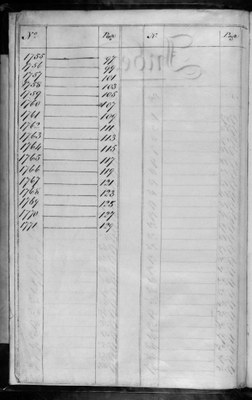 Nº. Pag. N. Pag.
1755 97
1756 99
1757 101
1758 103
1759 105
1760 107
1761 109
1762 111
1763 113
1764 115
1765 117
1766 119
1767 121
1768 123
1769 125
1770 127
1771 129